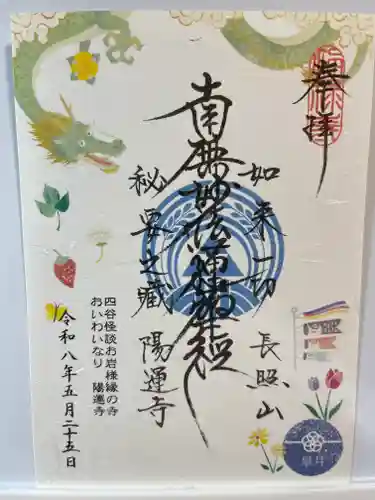 奉拝
如来一切 長照山
南無妙法蓮華経
秘要之蔵 陽運寺
四谷怪談お岩様縁の寺
おいわいなり 陽運寺
令和八年五月二十五日
皐月